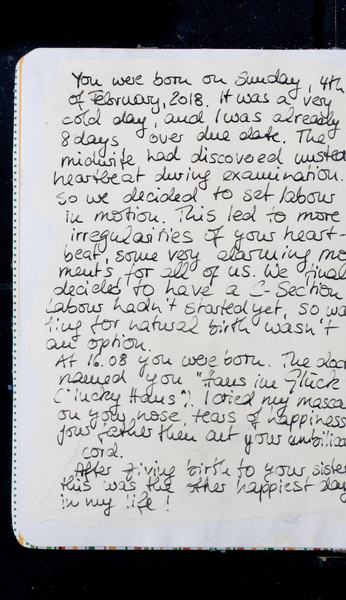 You were born on Sunday, 4th
of February, 2018. It was a very
cold day, and I was already
8 days over due date. The
midwife had discovered unstead
heartbeat during examination.
So we decided to set labour
in motion. This led to more
irregularities of your heart-
beat, some very alarming mo
ments for all of us. We final
decided to have a C-Section
Labour hadn't started yet, so wa
ting for natural birth wasn't
an option.
At 16.08 you were born. The doc
named you "Hans im Glück
("lucky Hans"). I cried my masca
on your nose, tears of happiness
your father then cut your umbilic
cord.
After giving birth to your sister
this was the other happiest day
in my life!